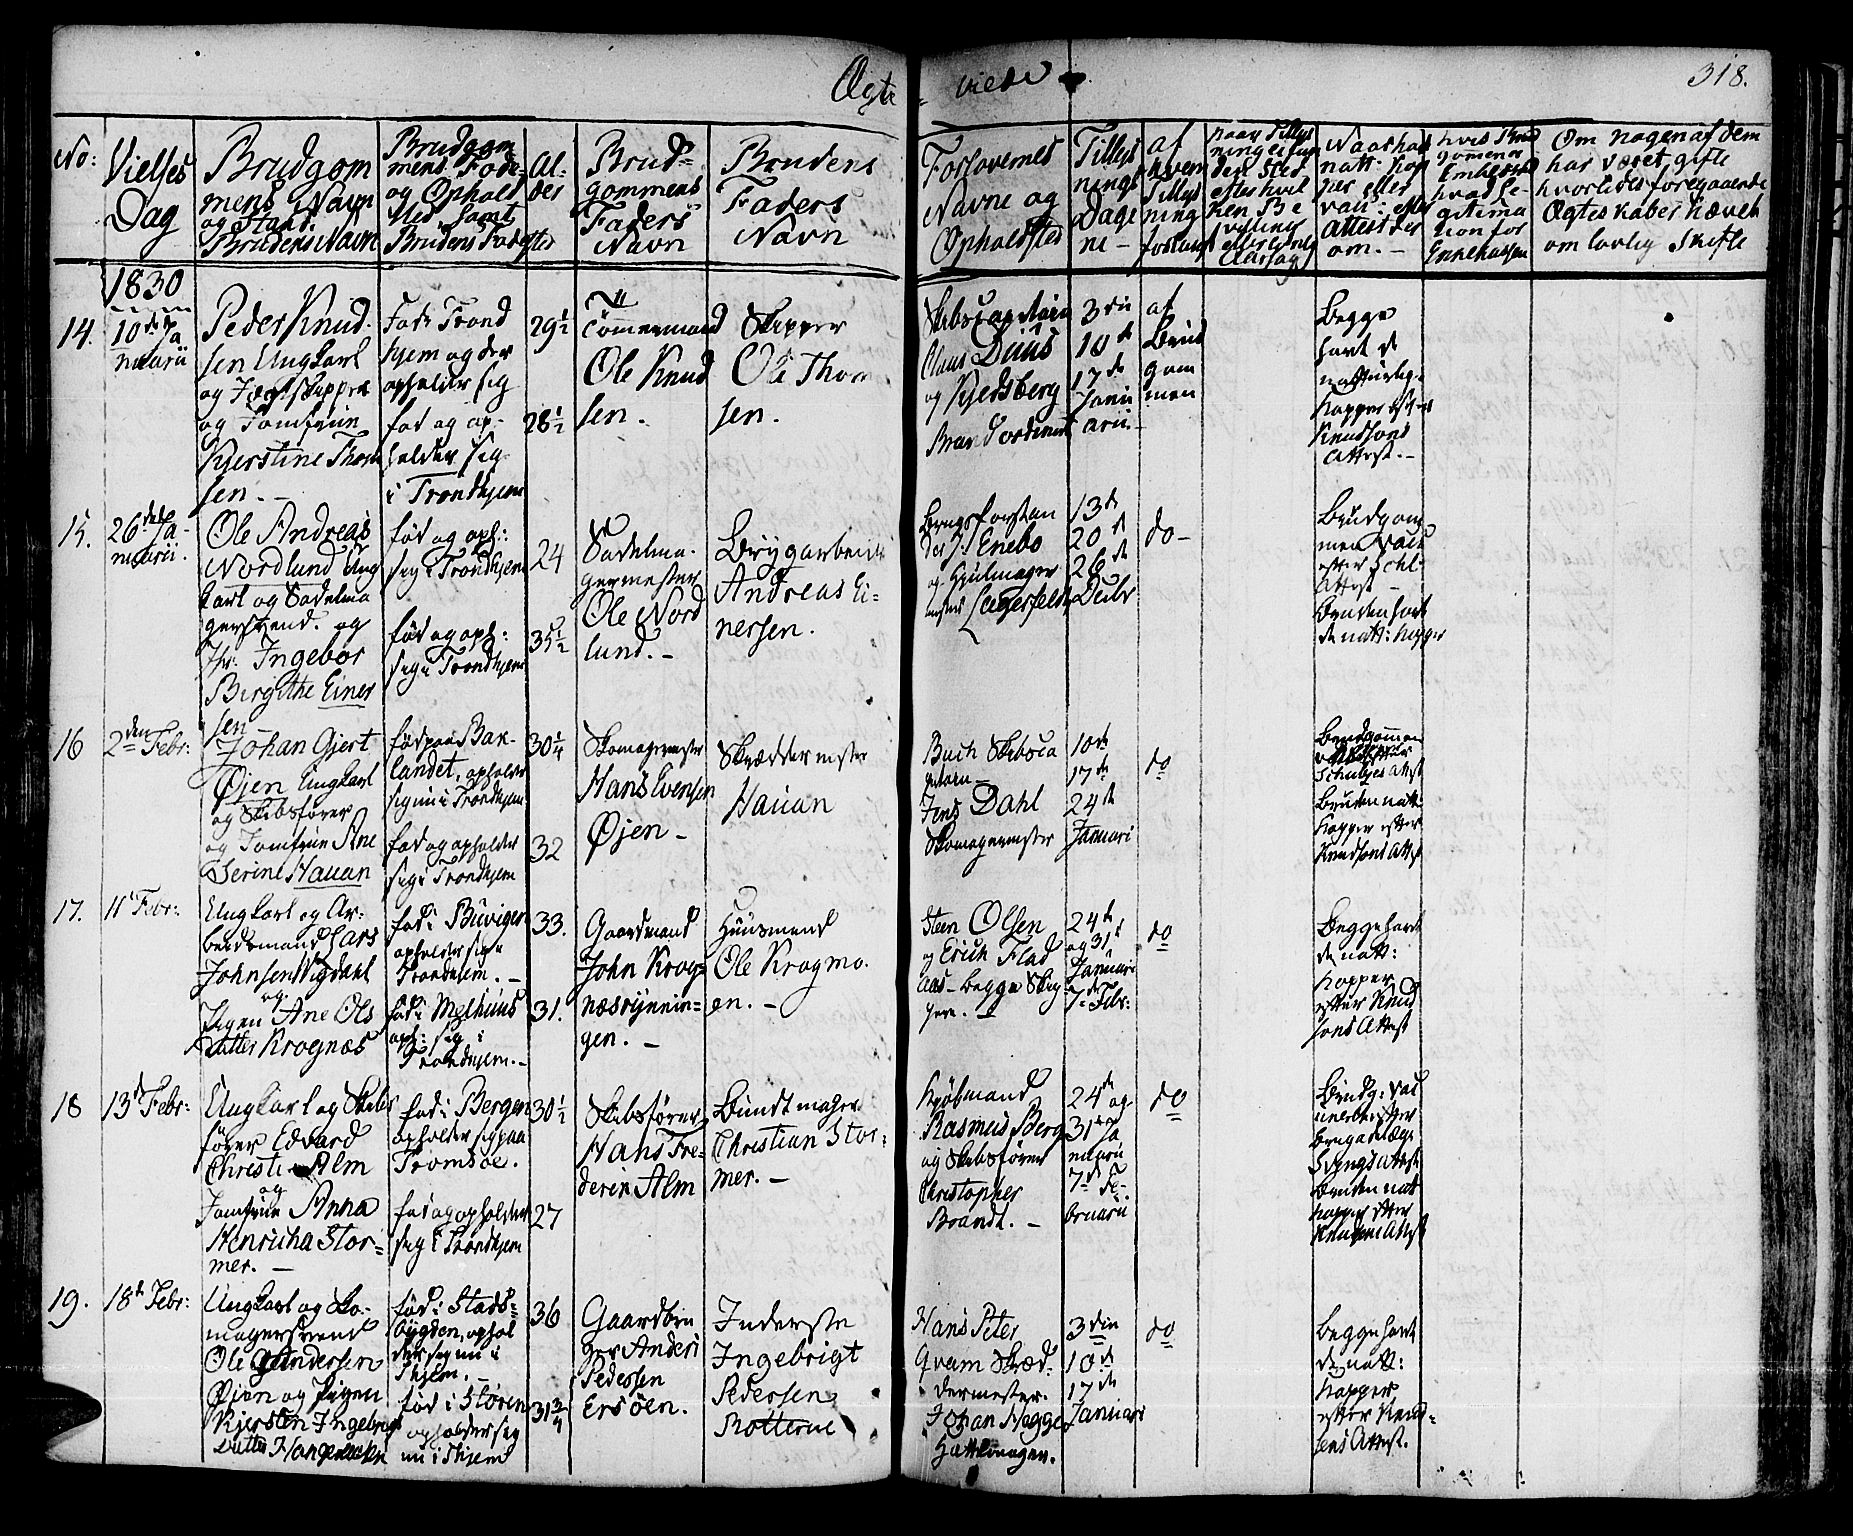 Ægte
viede
318.
No:
Vielses
Dag
Brudgom
mens Navn
og Stand.
Brudens Navn
Brudgom
mens Føde
og Ophold
sted samt
Brudens Fødested
Al-
der
Brud-
gommens
Faders
Navn
Brudens
Faders
Navn
Forlovernes
Navne og
Opholdsted
Tillys
nings
Dage
ne -
af
hvem
Tillys
ning
forlangt
Naar Tillys
ninge
den sted
efter hvil
ken Be
villing
eller
Aarsag
Naar
natt: kop
per eller
vacc: efter
Attest der
om. -
hvis Brud
gommen er
Enkemand
hvad Le-
gitima
tion for
Enkehassen
Om nogen af dem
har været gifte
hvorledes foregaaende
Ægteskaber hævet
om lovlig Skifte
1830
14.
10de Ja
nuarii
Peder Knud-
sen Ungkarl
og Jægtskipper
og Jomfrue
Kjerstine Thom
sen. -
Fød i Trond
hjem og der
opholder sig
fød og op-
holder sig
i Trondhjem
29½
28½
Tømmermand
Ole Knud
sen.
Skipper
Ole Thom
sen.
Skibscaptain
Claus Duus
og Kjeldsberg
3die
10de
17de
Janu
arii.
af
Brud
gom
men
Begge
havt de
naturlig-
Kopper efter
Knudsons
Attest. -
15.
26de Ja-
nuarii.
Ole Andreas
Nordlund Ung
karl og Sadelma
gersvend. og
Jfr: Ingebor
Birgithe Einer
sen
født og oph:
sig i Trondhjem
født og oph:
sig i Trondhjem
24
35½
Sadelma-
germester
Ole Nord
lund. -
Brygarbeid
Andreas Ei-
nersen.
Enebo
og Hjulmager
13de
20de
26de
Decbr
do -
Brudgom
men vacc
efter Schl
Attest -
Bruden havt
de natt: kopper
16
2den Febr:
Johan Gjert
Øjen Ungkarl
og Skibsfører
og Jomfrue Ane
Serine Hauan
født paa Bak-
landet, opholder
sig nu i Trondhjem
fød og opholder
sig i Trondhjem
30¼
32
Skomagermester
Hans Evensen
Øjen -
Skræddermester
Hauan
Buch Skibsca
pitain
Jens Dahl
Skomagermester
10de
17de
24de
Januari
do
Brudgommen
Schultzes Attest
Bruden natt:
Kopper efter
Knudsons Attest
17.
11te Febr:
Ungkarl og Ar-
beidsmand Lars
Johnsen Vigdahl
og
Pigen Ane Ols
datter Krognæs
fød i Buvigen
opholder sig i
Trondhjem. -
fød i Melhuus
oph: sig i
Trondhjem. -
33.
31.
Gaardmand
John Krog-
næsrynnin-
gen. -
Huusmand
Ole Krogmo-
en. -
Steen Olsen
og Erich Flad
aas - begge
24de
og 31te
Januari
7de Febr:
do
Begge havt
de natt:
kopper
efter Knud
sons Attest
18
13de Febr:
Ungkarl og Skibs
fører Edvard
Christi Alm
og
Jomfrue Anna
Henricha Stor-
mer. -
fød i Bergen
opholder sig paa
Tromsöe.
fød og opholder
sig i Trondhjem
30½
27
Skibsfører
Hans Fre-
derik Alm
Bundtmager
Christian Stor-
mer. -
Kjøbmand
Rasmus Berg
og Skibsfører
Christopher
Brandt. -
24de og
31te Ja
nuarii
7de Fe-
bruarii
do
Brudg: vac
cineret efter
Attest
Bruden natt
kopper efter
Knudsons Attest
19.
18de Febr:
Ungkarl og Sko-
magersvend
Ole Andersen
Øjen og Pigen
Kjersten Ingebrigt
datter
fød i Stads-
bygden, ophol
der sig nu i
Thjem. -
fød i Støren
opholder sig
nu i Thjem
36
31¾
Gaardbru
ger Anders
Pedersen
Ersöen.
Inderste
Ingebrigt
Pedersen
Hans Peter
Qvam Skræd-
dermester.
Johan
3die
10de
17de
Januari
do
Begge havt
de natt:
kopper
efter Knud-
sens Attest.